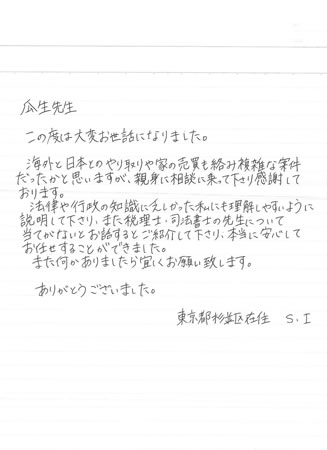 瓜生先生
この度は大変お世話になりました。
海外と日本とのやり取りや家の売買も絡み複雑な案件
だったかと思いますが、親身に相談に乗って下さり感謝して
おります。
法律や行政の知識に乏しかった私にも理解しやすいように
説明して下さり、また税理士・司法書士の先生について
当てがないとお話するとご紹介して下さり、本当に安心して
お任せすることができました。
また何かありましたら宜しくお願い致します。
ありがとうございました。
東京都杉並区在住 S.I